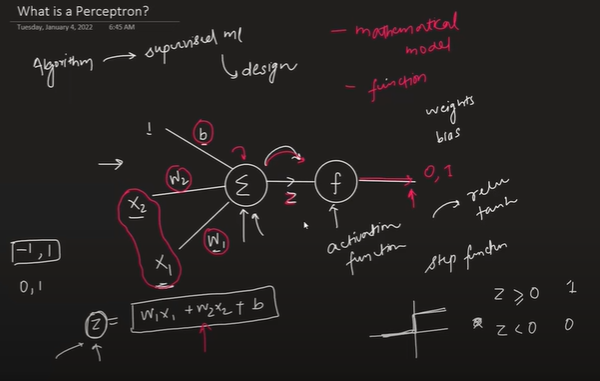 What is a Perceptron?
Tuesday, January 4, 2022 6:45 AM
Algorithm → supervised ml
↳ design
- mathematical
model
- function
weights
bias
1
b
W2
Σ
Z
f
0, 1
X2
W1
X1
-1, 1
0, 1
activation
function
relu
tanh
step function
Z = W1X1 + W2X2 + b
Z ≥ 0 1
Z < 0 0